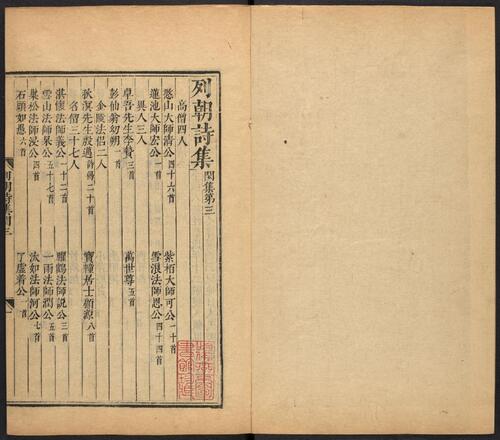 列朝詩集 閏集第三
高僧四人
憨山大師清公 四十六首 紫栢大師可公 一十首
蓮池大師宏公 一首 雪浪法師恩公 四十四首
異人三人
卓吾先生李贄 三首 萬世尊 五首
彭仙翁幼朔 一首
金陵法侶二人
秋溟先生殷邁 詩偈二十首 寶幢居士顧源 八首
名僧三十七人
湛懷法師義公 一十二首 臞鶴法師説公 三首
雪山法師杲公 五十七首 一雨法師潤公 五首
巢松法師浸公 四首 汰如法師河公 七首
石頭如愚 六首 了虛着公 一首
列朝詩集閏三